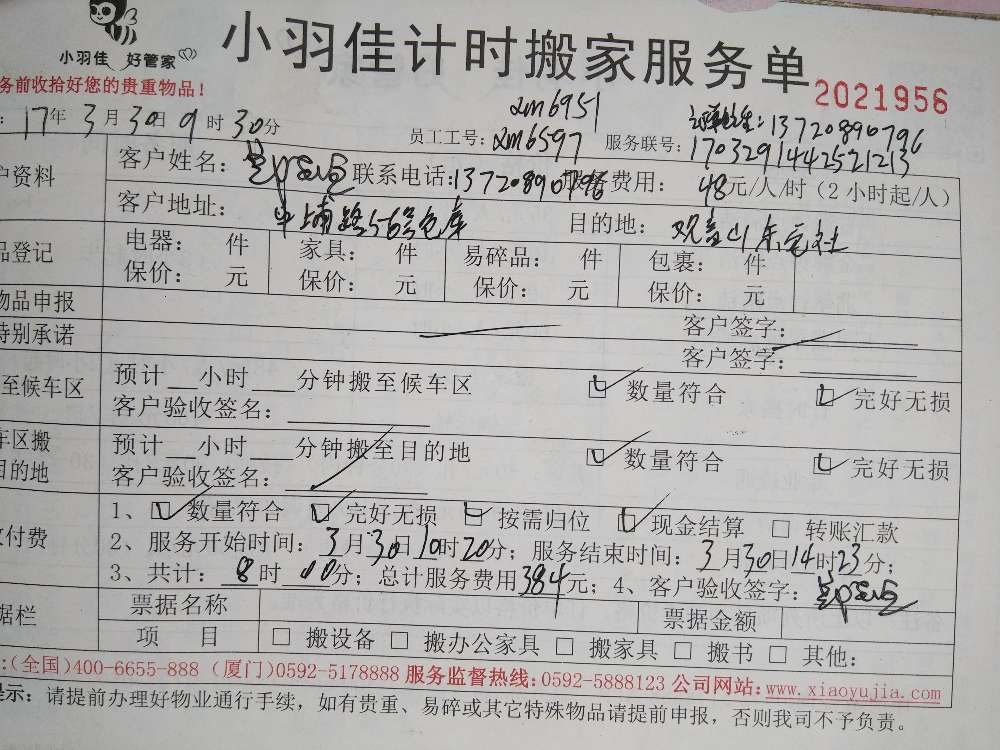 小羽佳 好管家
小羽佳计时搬家服务单
2021956
务前收拾好您的贵重物品！
17年3月30日9时30分
员工工号：2m6951 2m6597
服务联号：13720890796
1703291442521213
户资料
客户姓名： 联系电话：13720890796 服务费用：48元/人/时（2小时起/人）
客户地址： 路 号仓库 目的地：观音山
品登记
电器： 件 家具： 件 易碎品： 件 包裹： 件
保价： 元 保价： 元 保价： 元 保价： 元
物品申报
客户签字：
特别承诺
客户签字：
至候车区
预计 小时 分钟搬至候车区 数量符合 完好无损
客户验收签名：
车区搬
目的地
预计 小时 分钟搬至目的地 数量符合 完好无损
客户验收签名：
付费
1、数量符合 完好无损 按需归位 现金结算 转账汇款
2、服务开始时间：3月30日10时20分；服务结束时间：3月30日14时23分；
3、共计：8时00分；总计服务费用384元；4、客户验收签字：
据栏
票据名称 票据金额
项 目 搬设备 搬办公家具 搬家具 搬书 其他：
：（全国）400-6655-888（厦门）0592-5178888 服务监督热线：0592-5888123 公司网站：www.xiaoyujia.com
提示：请提前办理好物业通行手续，如有贵重、易碎或其它特殊物品请提前申报，否则我司不予负责。